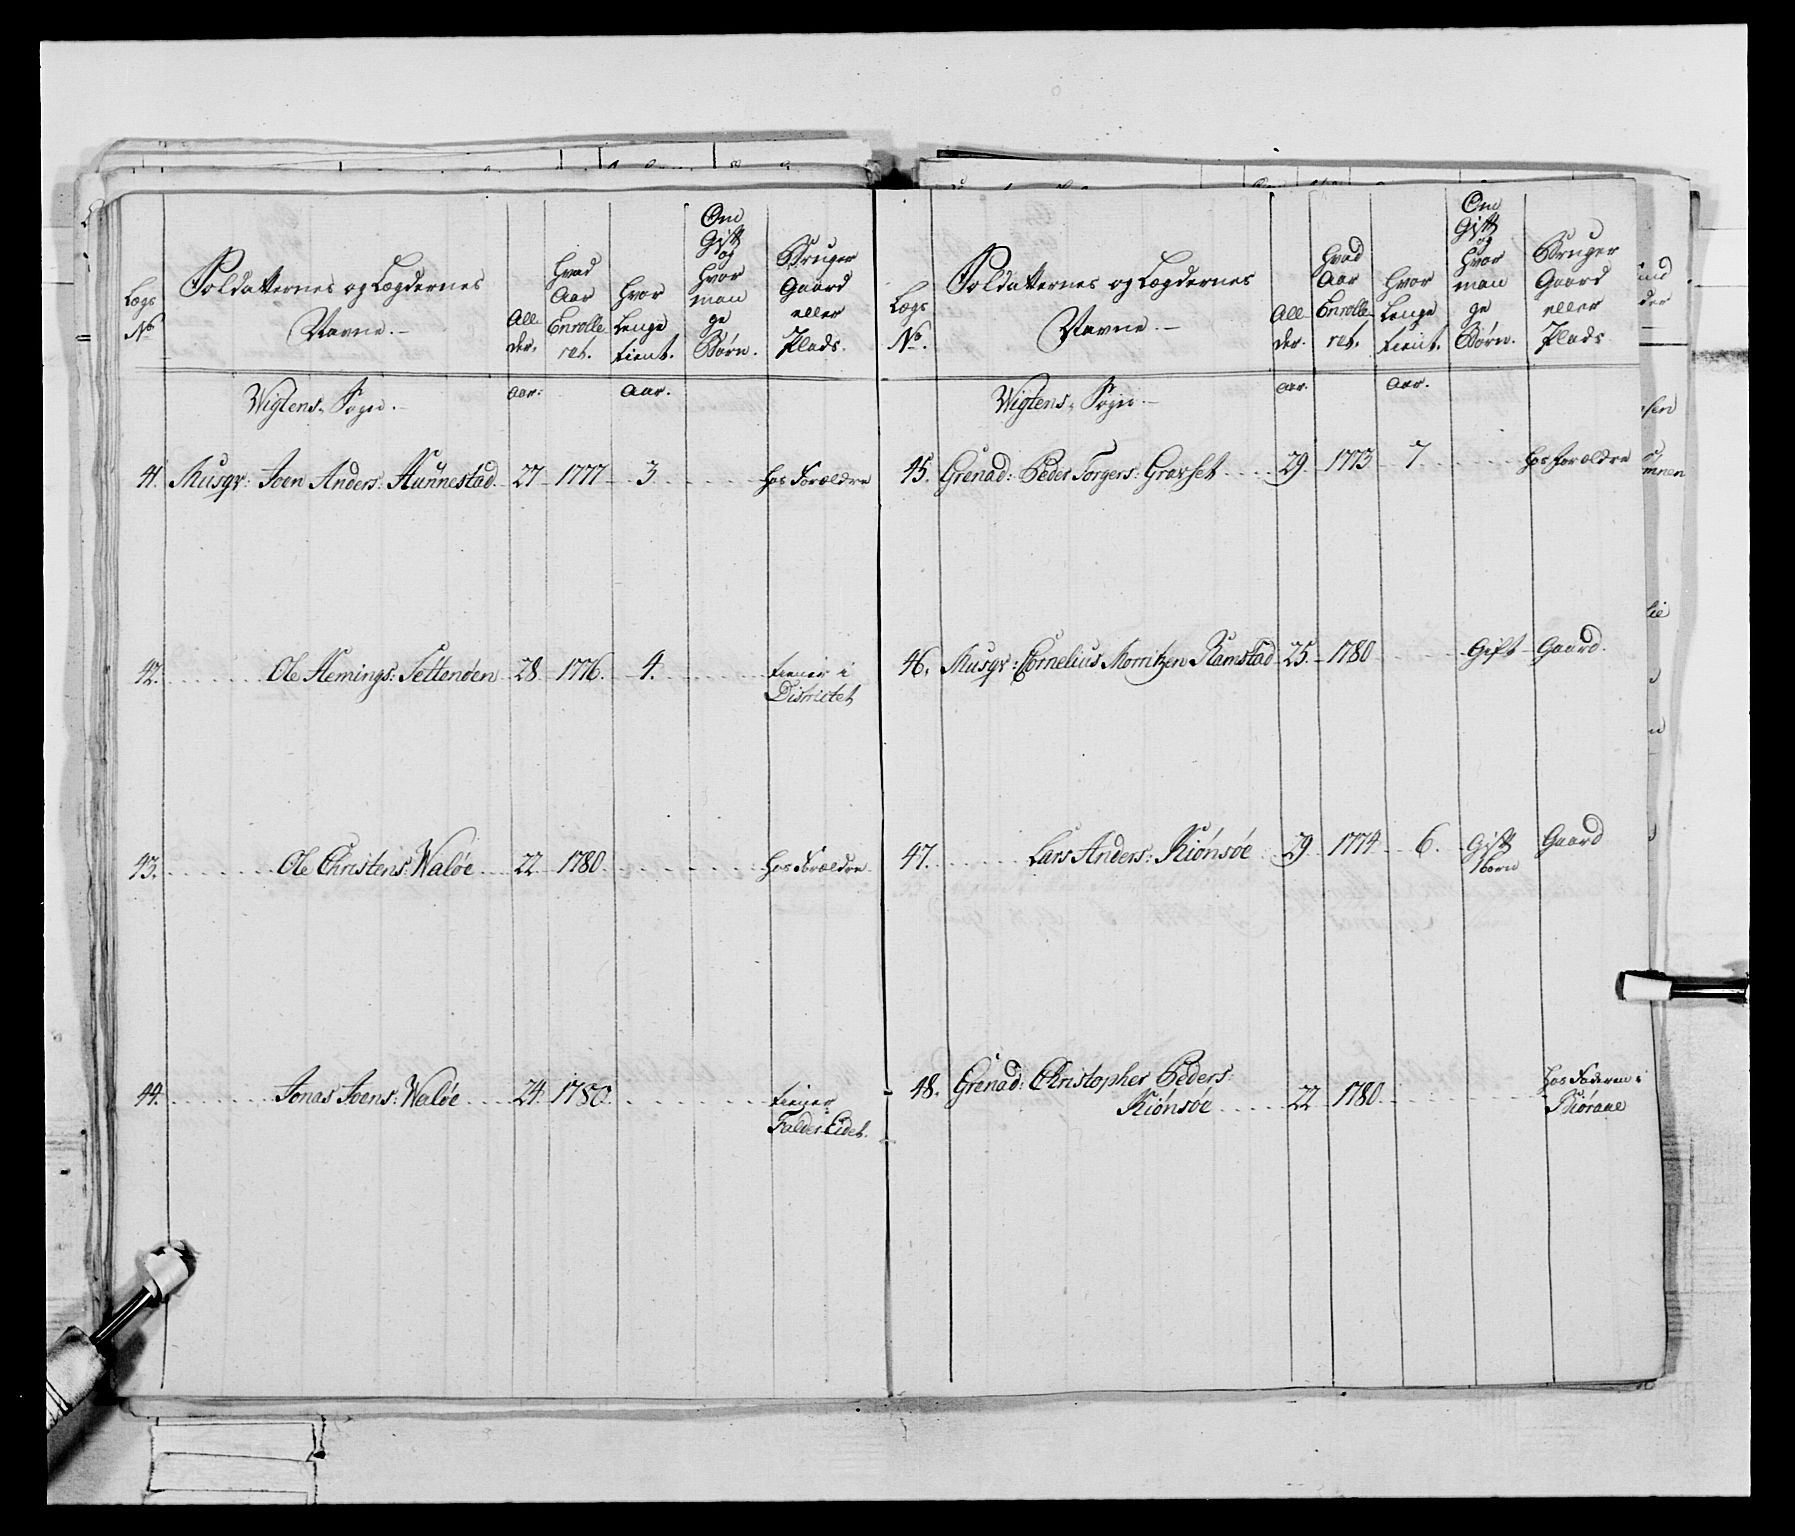 Lægs No
Soldatternes og Lægdernes Navne.
Allder.
Hvad Aar Enrolleret.
Hvor Lenge tient.
Om Gift og Hvor mange Børn.
Bruger Gaard eller Plads.
Wigtens Sogn. aar: aar.
41. Musqr: Joen Anders: Hunnestad 27 1777 3 hos Forældre
42. Ole Hemings: Settenøen 28 1776. 4. tiener i
Districtet
43. Ole Christens: Waløe 22 1780 hos Forældre
44. Jonas Joens: Waløe 24 1780 tiener
Falder Eidet.
Lægs No.
Soldatternes og Lægdernes Navne.
Allder.
Hvad Aar Enrolleret.
Hvor Lenge tient.
Om Gift og Hvor mange Børn.
Bruger Gaard eller Plads
Wigtens Sogn. aar. aar.
45. Grenad: Peder Torgers: Gravset 29 1773 7 hos Forældre
46. Musqr: Cornelius Morritzen Ramstad 25 1780 Gift Gaard.
47. Lars Anders: Kiønsøe 29 1774 6. Gift Gaard
1 barn
48. Grenad: Christopher Peders hos Faderen i
Kiønsøe 22 1780